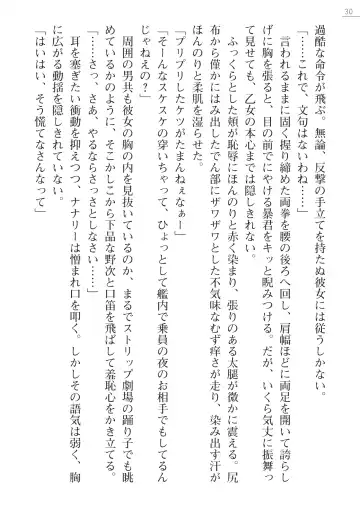 30
過酷な命令が飛ぶ。無論、反撃の手立てを持たぬ彼女には従うしかない。
「……これで、文句はないわね……」
言われるままに固く握り締めた両拳を腰の後ろへ回し、肩幅ほどに両足を開いて誇らし
げに胸を張ると、目の前でにやける暴君をキッと睨みつける。だが、いくら気丈に振舞っ
てみせても、乙女の本心までは隠しきれない。
ふっくらとした頬が恥辱にほんのりと赤く染まり、張りのある太腿が微かに震える。尻
布から僅かにはみ出したでん部にザワザワとした不気味なむず痒さが走り、染み出す汗が
ほんのりと柔肌を湿らせた。
「プリプリしたケツがたまんねぇなぁー」
「そーんなスケスケの穿いちゃって、ひょっとして艦内で乗員の夜のお相手でもしてるん
じゃねえの？」
周囲の男共も彼女の胸の内を見抜いているのか、まるでストリップ劇場の踊り子でも眺
めているかのように、そこかしこから下品な野次と口笛を飛ばして羞恥心をかき立てる。
「……さっ、さあ、やるならさっさとしなさい……」
耳を塞ぎたい衝動を抑えつつ、ナナリーは憎まれ口を叩く。しかしその語気は弱く、胸
に広がる動揺を隠しきれていない。
「はいはい、そう慌てなさんなって」